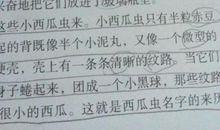 兴奋地把它们放进了玻璃瓶里
这些小西瓜虫来。小西瓜虫只有半粒赤豆
起的背既像半个小泥丸，又像一个微型的
硬壳，壳上有一条条清晰的纹路。当它们
身子蜷起来，团成一个小黑球，那些纹路
很小的西瓜。这就是西瓜虫名字的来历